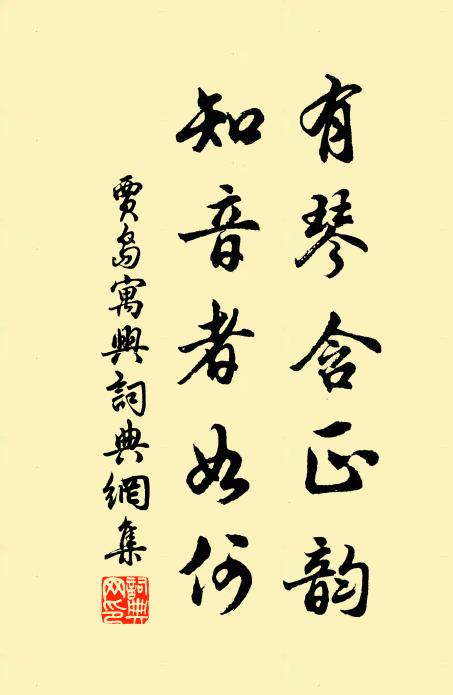 有琴含正韵
知音者如何
賈島寓興詞典網集
詞典网印